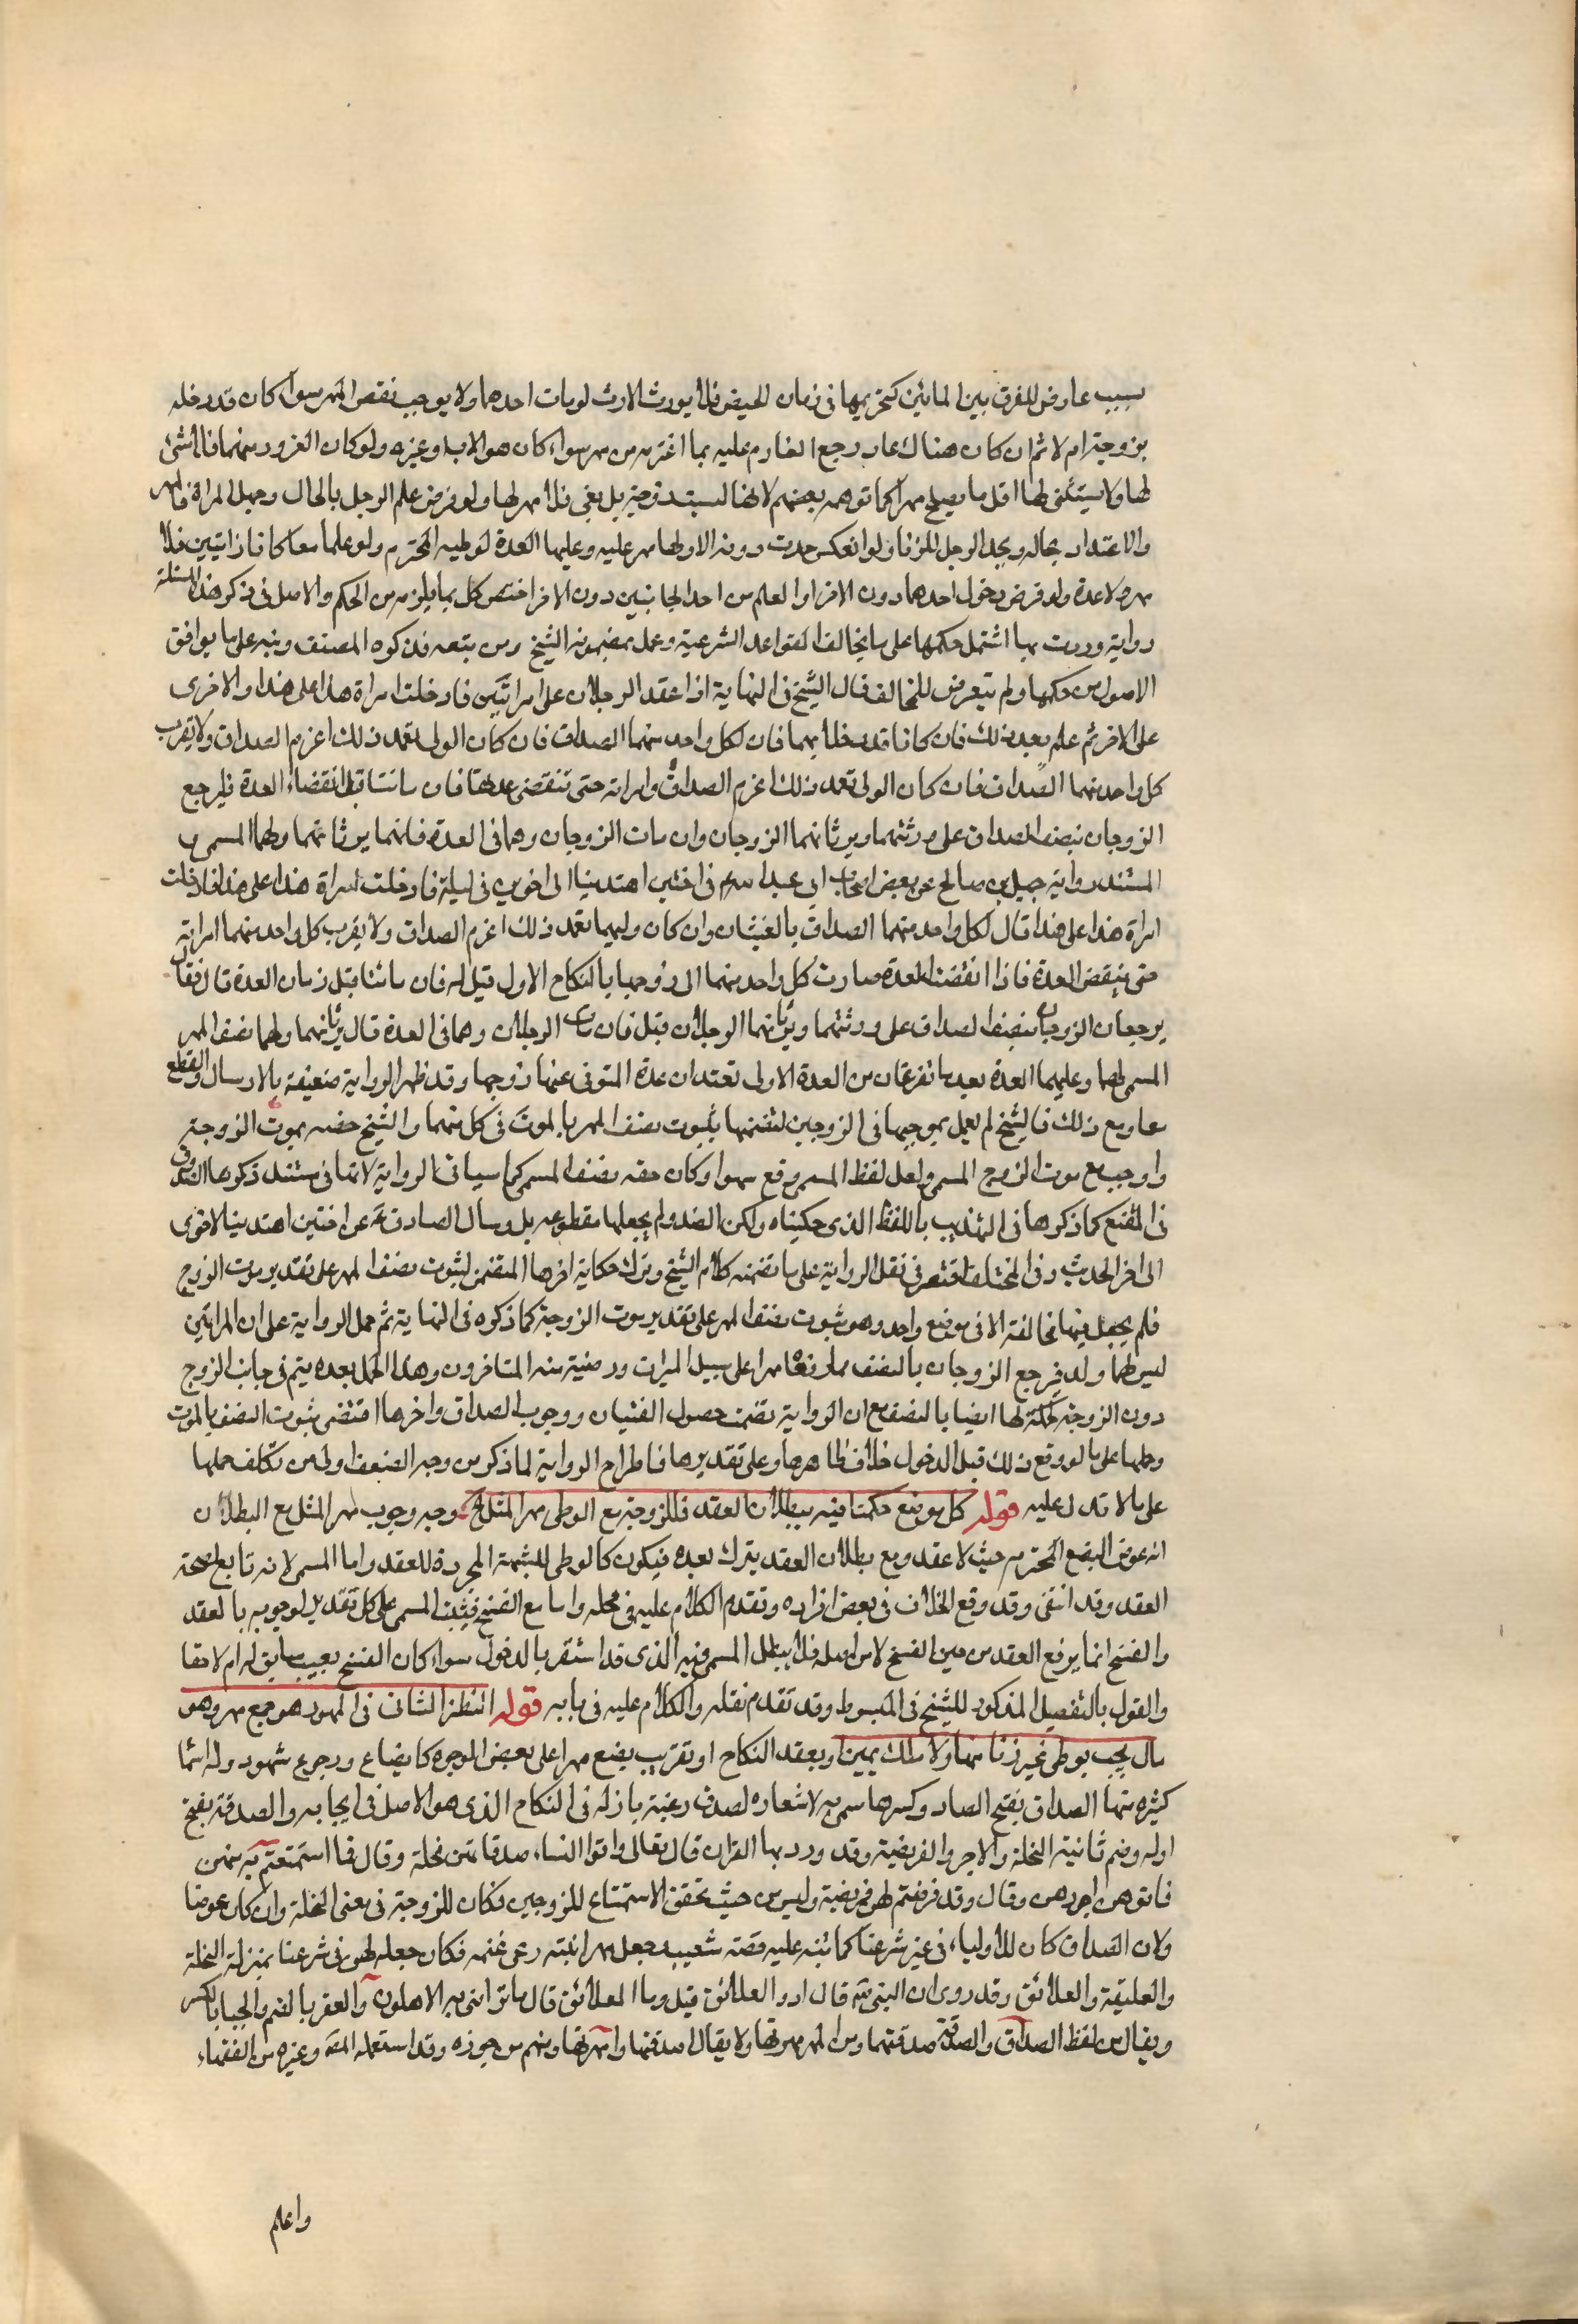 بسبب عارض للفرق بين المائين كتحريمها في زمان الحيض فلا يورث الارث لو مات احدهما ولا يوجب نقص المهر سواء كان قد دخله
بزوجته ام لا ثم ان كان هناك غار رجع الغارم عليه بما اغترمه من مهر سواء كان هو الاب او غيره ولو كان الغرور منهما فلا شئ
لها ولا يستثنى لها اقل ما يصلح مهرا كما توهمه بعضهم لانها ليست زوجة بل بغي فلا مهر لها ولو فرض علم الرجل بالحال وجهل المراة فالمهر
والاعتداد بحاله ويحد الرجل للزنا ولو انعكس حدت دونه الا ولها مهر عليه وعليها العدة لوطيه المحترم ولو علما معا كانا زانيين فلا
مهر ولا عدة ولو فرض دخول احدهما دون الاخر او العلم من احد الجانبين دون الاخر اختص كل بما يلزمه من الحكم والاصل في ذكر هذه المسئلة
رواية وردت بها اشتمل حكمها على ما يخالف القواعد الشرعية وعمل بمضمونه الشيخ ومن تبعه فذكره المصنف ونبه على ما يوافق
الاصول من حكمها ولم يتعرض للمخالف فقال الشيخ في النهاية اذا عقد الرجلان على امراتين فادخلت امراة هذا على هذا والاخرى
على الاخر ثم علم بعد ذلك فان كانا قد دخلا بهما فان لكل واحد منهما الصداق فان كان الولي تعمد ذلك اغرم الصداق ولا يقرب
كل واحد منهما الصداق فان كان الولي تعمد ذلك اغرم الصداق وامراته حتى تنقضي عدتها فان ماتتا قبل انقضاء العدة فليرجع
الزوجان بنصف الصداق على ورثتهما ويرثانهما الزوجان وان مات الزوجان وهما في العدة فانهما يرثانهما ولهما المسمى و
المستند رواية جميل بن صالح عن بعض اصحاب ابي عبد الله ع في اختين اهديتا الى اخوين في ليلة فادخلت امراة هذا على هذا وادخلت
امراة هذا على هذا قال لكل واحد منهما الصداق بالغشيان وان كان وليهما تعمد ذلك اغرم الصداق ولا يقرب كل واحد منهما امراته
حتى ينقضي العدة فاذا انقضت العدة صارت كل واحد منهما الى زوجها بالنكاح الاول قيل له فان ماتتا قبل زمان العدة قال فقال
يرجعان الزوجان بنصف الصداق على ورثتهما ويرثانهما الرجلان قيل فان مات الرجلان وهما في العدة قال يرثانهما ولهما نصف المهر
المسمى لهما وعليهما العدة بعد ما تفرغان من العدة الاولى تعتدان عدة المتوفى عنها زوجها وقد ظهر الرواية ضعيفة بالارسال والقطع
معا ومع ذلك فالشيخ لم يعمل بموجبها في الزوجين لتضمنها بثبوت نصف المهر بالموت في كل منهما والشيخ خصه بموت الزوجة
واوجب مع موت الزوج المسمى ولعل لفظ المسمى وقع سهوا وكان حقه نصف المسمى كما سياتي الرواية لانها في مستند ذكرها الصدوق
في المقنع كما ذكرها في التهذيب باللفظ الذي حكيناه ولكن الصدوق لم يجعلها مقطوعة بل وسال الصادق ع عن اختين اهديتا لاخوين
الى اخر الحديث وفي المختلف اقتصر في نقل الرواية على ما تضمنه كلام الشيخ وترك حكاية اخرها المتضمن لثبوت نصف المهر على تقدير موت الزوج
فلم يجعل فيها مخالفة الا في موضع واحد وهو ثبوت نصف المهر على تقدير موت الزوجة كما ذكره في النهاية ثم حمل الرواية على ان المراتين
ليس لهما ولد فرجع الزوجان بالنصف مما دفعا مهرا على سبيل الميراث ورضيته منه المتاخرون وهذا الحمل بعده يتم في جانب الزوج
دون الزوجة لحكمه لها ايضا بالنصف مع ان الرواية تضمنت حصول الغشيان ووجوب الصداق واخرها اقتضى ثبوت النصف بالموت
وحملها على ما لو وقع ذلك قبل الدخول خلاف ظاهرها وعلى تقديرها فاطراح الرواية لما ذكر من وجه الضعف اولى من تكلف حملها
على ما لا تدل عليه قوله كل موضع حكمنا فيه ببطلان العقد فللزوجة مع الوطي مهر المثل الخ وجه وجوب مهر المثل مع البطلان
انه عوض البضع المحترم حيث لا عقد ومع بطلان العقد ينزل بعده فيكون كالوطي للشبهة المجردة للعقد واما المسمى لانه تابع لصحة
العقد وقد انتفى وقد وقع الخلاف في بعض افراده وتقدم الكلام عليه في محله واما مع الفسخ فيثبت المسمى على كل تقدير لوجوبه بالعقد
والفسخ انما يرفع العقد من حين الفسخ لا من اصله فلا يبطل المسمى فيه الذي قد استقر بالدخول سواء كان الفسخ بعيب سابق له ام لاحقا
والقول بالتفصيل المذكور للشيخ في المبسوط وقد تقدم نقله والكلام عليه في بابه قوله النظر الثاني في المهور هو جمع مهر وهو
مال يجب بوطي غير زنا منها ولا ملك يمين او بعقد النكاح او تفويت بضع مهرا على بعض الوجوه كارضاع ورجوع شهود وله اسما
كثيره منها الصداق بفتح الصاد وكسرها سمي به لاشعاره لصدق رغبة باذله في النكاح الذي هو الاصل في ايجابه والصدقة بفتح
اوله وضم ثانية النحلة والاجر والفريضة وقد ورد بها القران قال تعالى واتوا النساء صدقاتهن نحلة وقال فما استمتعتم به منهن
فاتوهن اجورهن وقال وقد فرضتم لهن فريضة وليس من حيث تحقق الاستمتاع للزوجين فكان للزوجة في معنى النحلة وان كان عوضا
ولان الصداق كان للاولياء في غير شرعنا كما تنبه عليه قصة شعيب جعل مهر ابنته رعي غنمه فكان جعله لهن في شرعنا بمنزلة النحلة
والعليقة والعلائق وقد روي ان النبي ص قال ادوا العلائق قيل وما العلائق قال ما تراضى به الاهلون والعقر بالضم والحباء بالكسر
ويقال من لفظ الصداق والصدقة صدقتهما ومن المهر مهرتها ولا يقال اصدقتها وامهرتها ومنهم من جوزه وقد استعمله المص وغيره من الفقهاء
واعلم